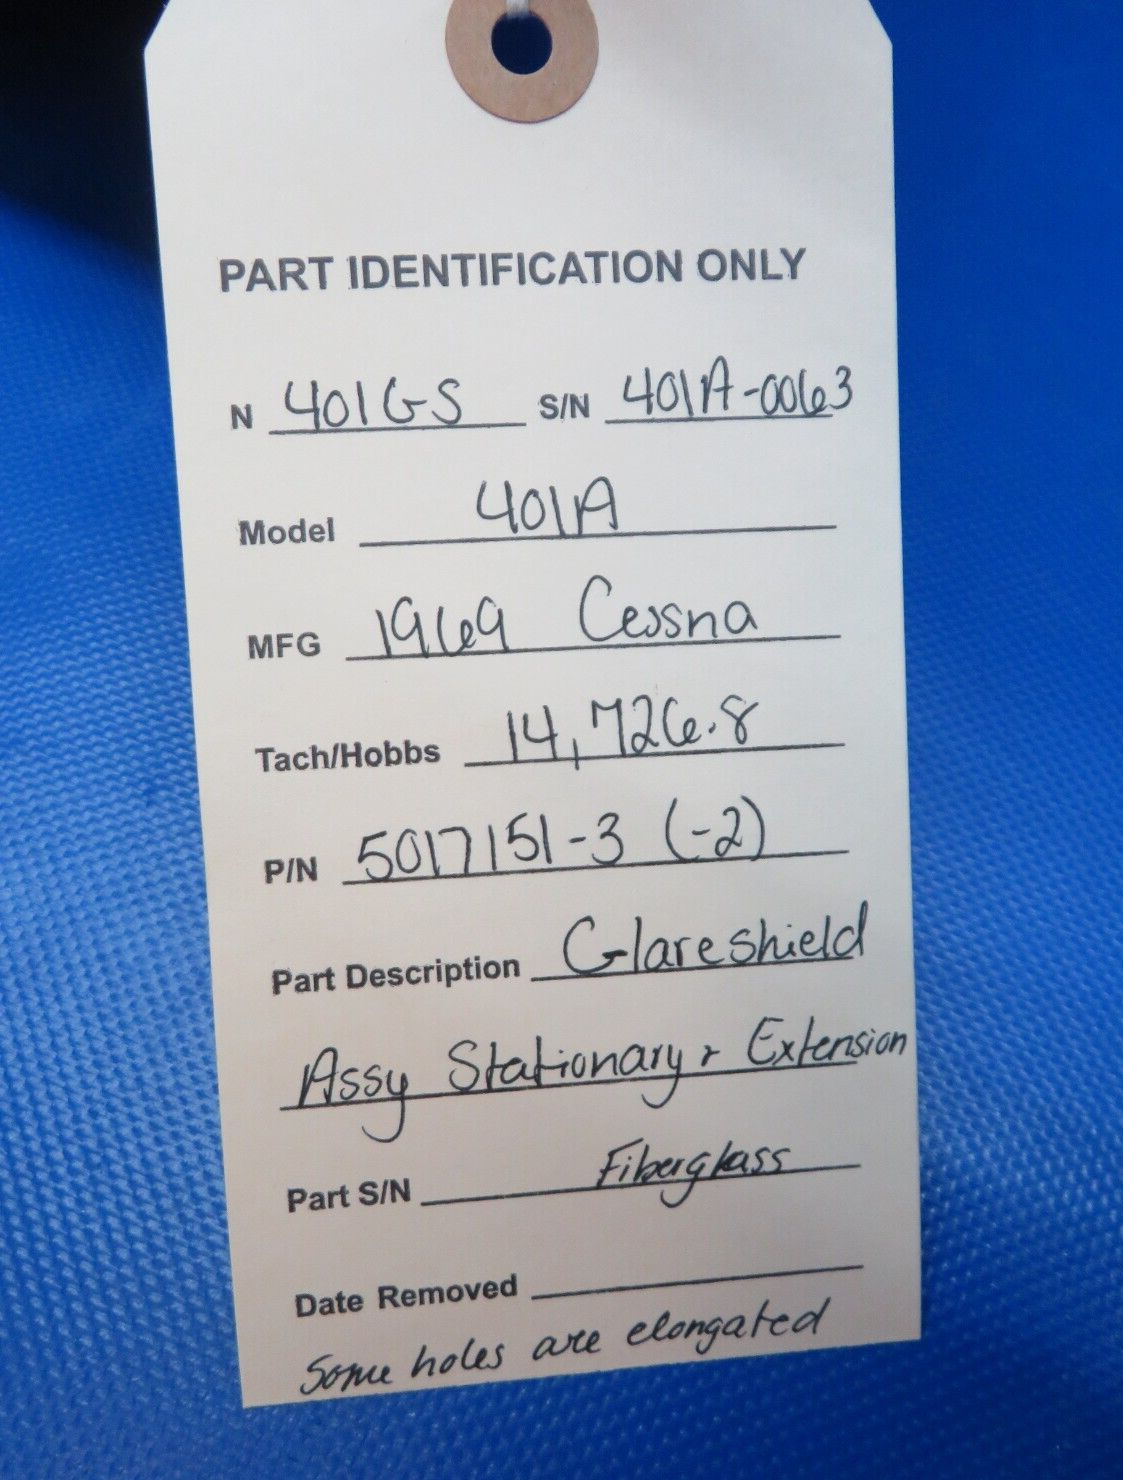 PART IDENTIFICATION ONLY
N 401GS S/N 401A-0063
Model 401A
MFG 1969 Cessna
Tach/Hobbs 14,726.8
P/N 5017151-3 (-2)
Part Description Glareshield
Assy Stationary & Extension
Part S/N Fiberglass
Date Removed
Some holes are elongated